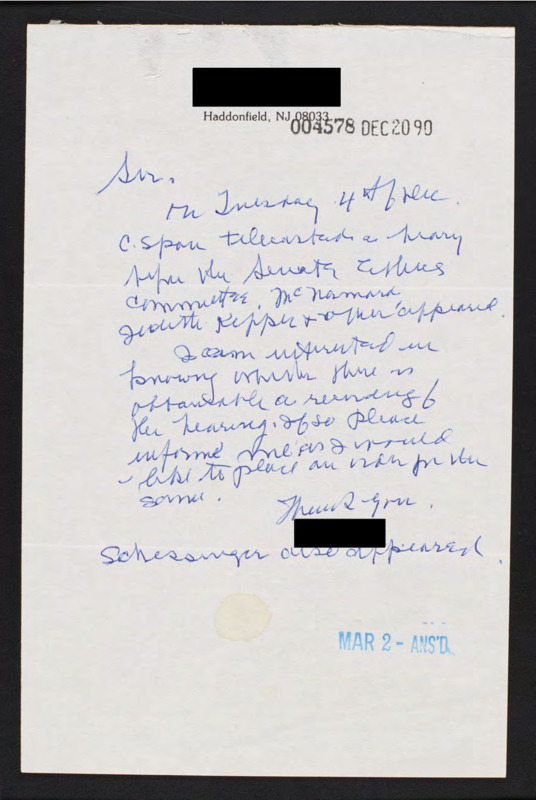 Haddonfield, NJ 08033
004578 DEC 20 90
Sir.
On Tuesday 4th of Dec.
C. Span telecasted a heary
before the Senate Ethics
Committee. McNamara
Judith Kipper & other appeared.
I am interested in
knowing whether there is
obtainable a recording of
the hearing. If so please
informe me as I would
like to place an order for the
same.
Thank you.
Schessinger also appeared.
MAR 2 - ANS'D.